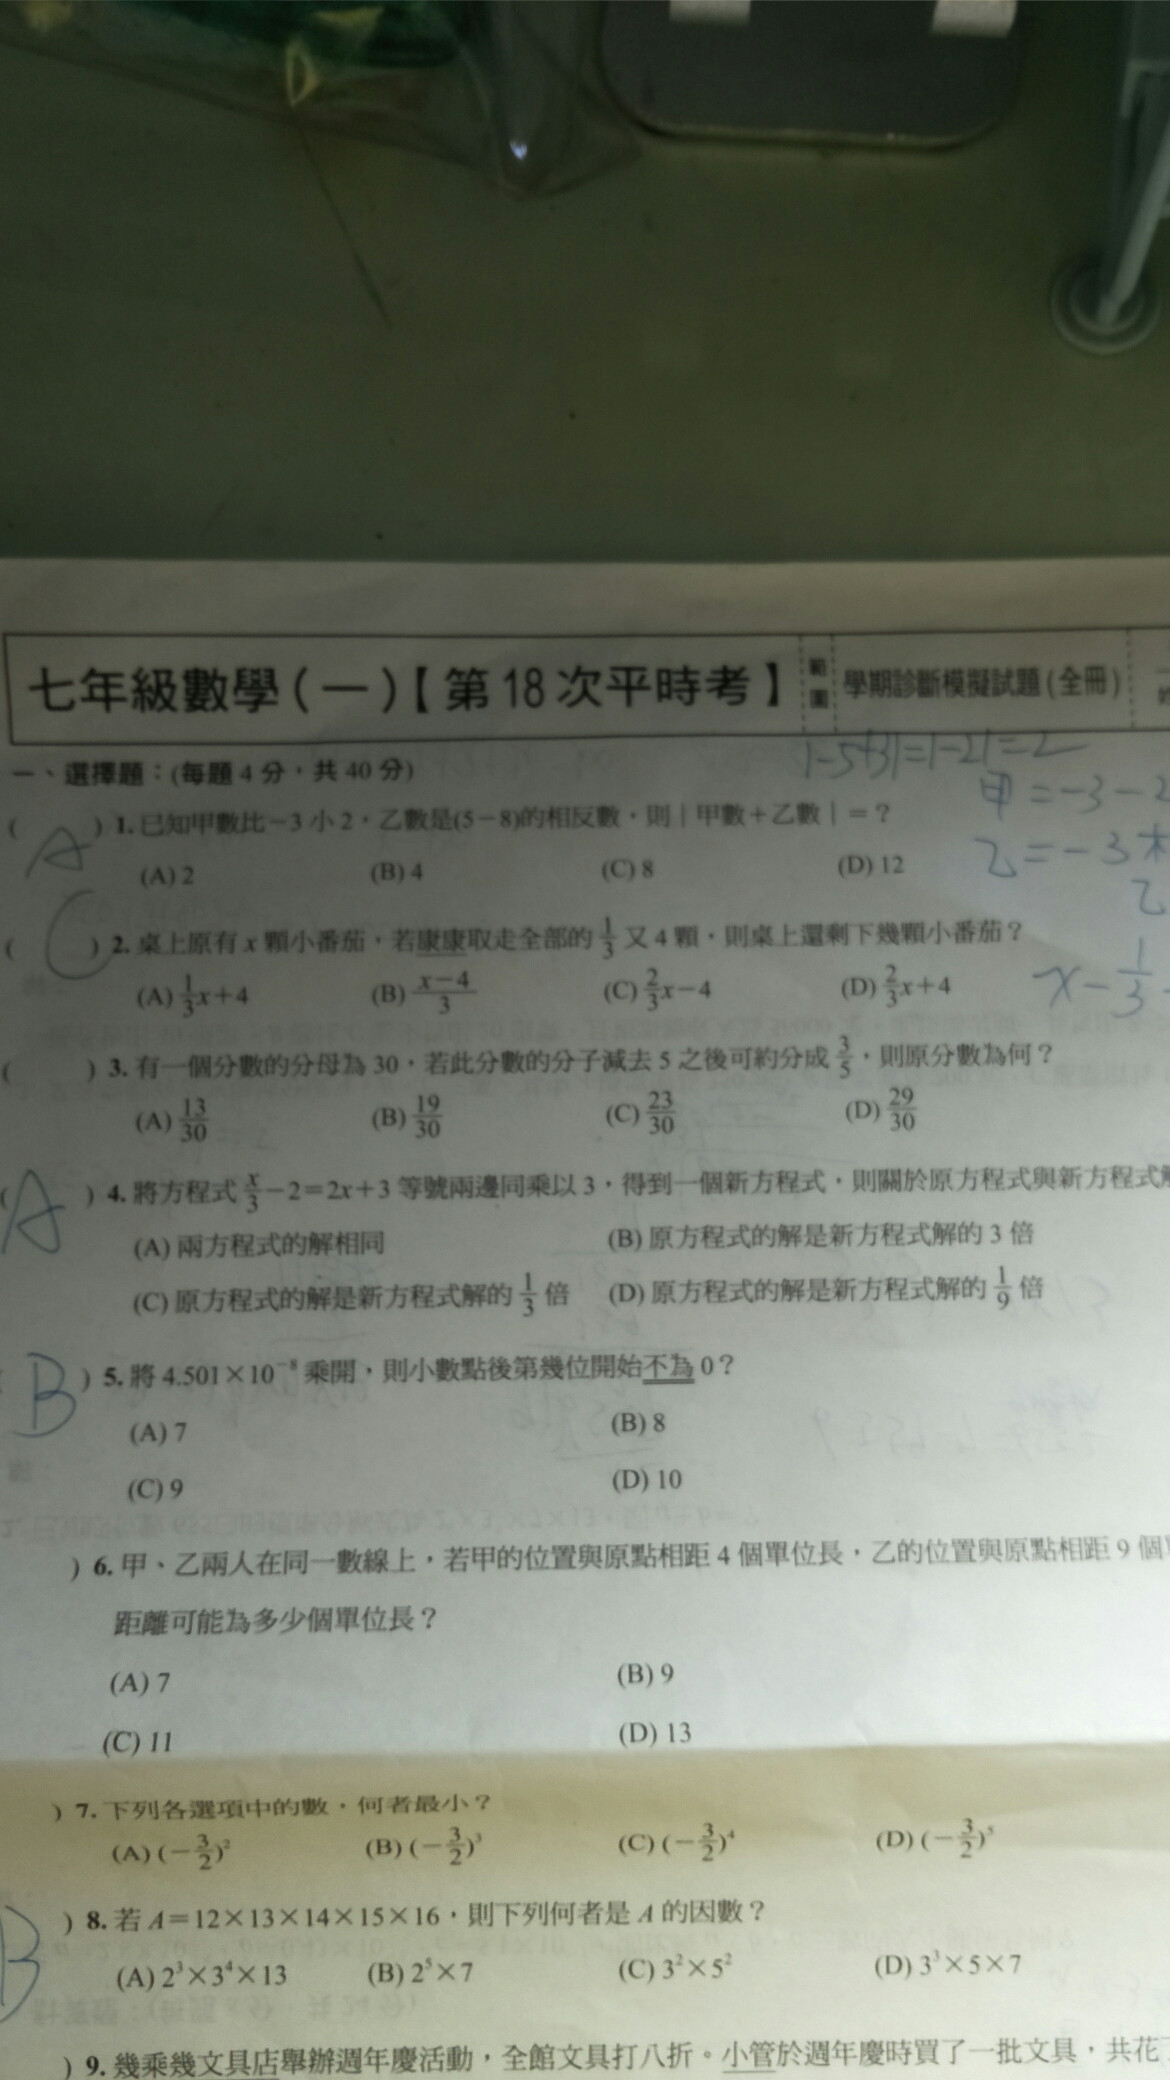 七年級數學(一)【第18次平時考】 範圍 學期診斷模擬試題(全冊)
一、選擇題：(每題4分，共40分)
|-5+3|=|-2|=2
甲=-3-2
( A ) 1. 已知甲數比-3小2，乙數是(5-8)的相反數，則|甲數+乙數|=？
乙=-3
(A) 2 (B) 4 (C) 8 (D) 12
乙
( C ) 2. 桌上原有x顆小番茄，若康康取走全部的1/3又4顆，則桌上還剩下幾顆小番茄？
(A) 1/3x+4 (B) x-4/3 (C) 2/3x-4 (D) 2/3x+4
x-1/3-
( ) 3. 有一個分數的分母為30，若此分數的分子減去5之後可約分成3/5，則原分數為何？
(A) 13/30 (B) 19/30 (C) 23/30 (D) 29/30
( A ) 4. 將方程式x/3-2=2x+3等號兩邊同乘以3，得到一個新方程式，則關於原方程式與新方程式
(A) 兩方程式的解相同 (B) 原方程式的解是新方程式解的3倍
(C) 原方程式的解是新方程式解的1/3倍 (D) 原方程式的解是新方程式解的1/9倍
( B ) 5. 將4.501×10⁻⁸乘開，則小數點後第幾位開始不為0？
(A) 7 (B) 8
(C) 9 (D) 10
) 6. 甲、乙兩人在同一數線上，若甲的位置與原點相距4個單位長，乙的位置與原點相距9個
距離可能為多少個單位長？
(A) 7 (B) 9
(C) 11 (D) 13
) 7. 下列各選項中的數，何者最小？
(A) (-3/2)² (B) (-3/2)³ (C) (-3/2)⁴ (D) (-3/2)⁵
B ) 8. 若A=12×13×14×15×16，則下列何者是A的因數？
(A) 2³×3⁴×13 (B) 2⁵×7 (C) 3²×5² (D) 3³×5×7
) 9. 幾乘幾文具店舉辦週年慶活動，全館文具打八折。小管於週年慶時買了一批文具，共花